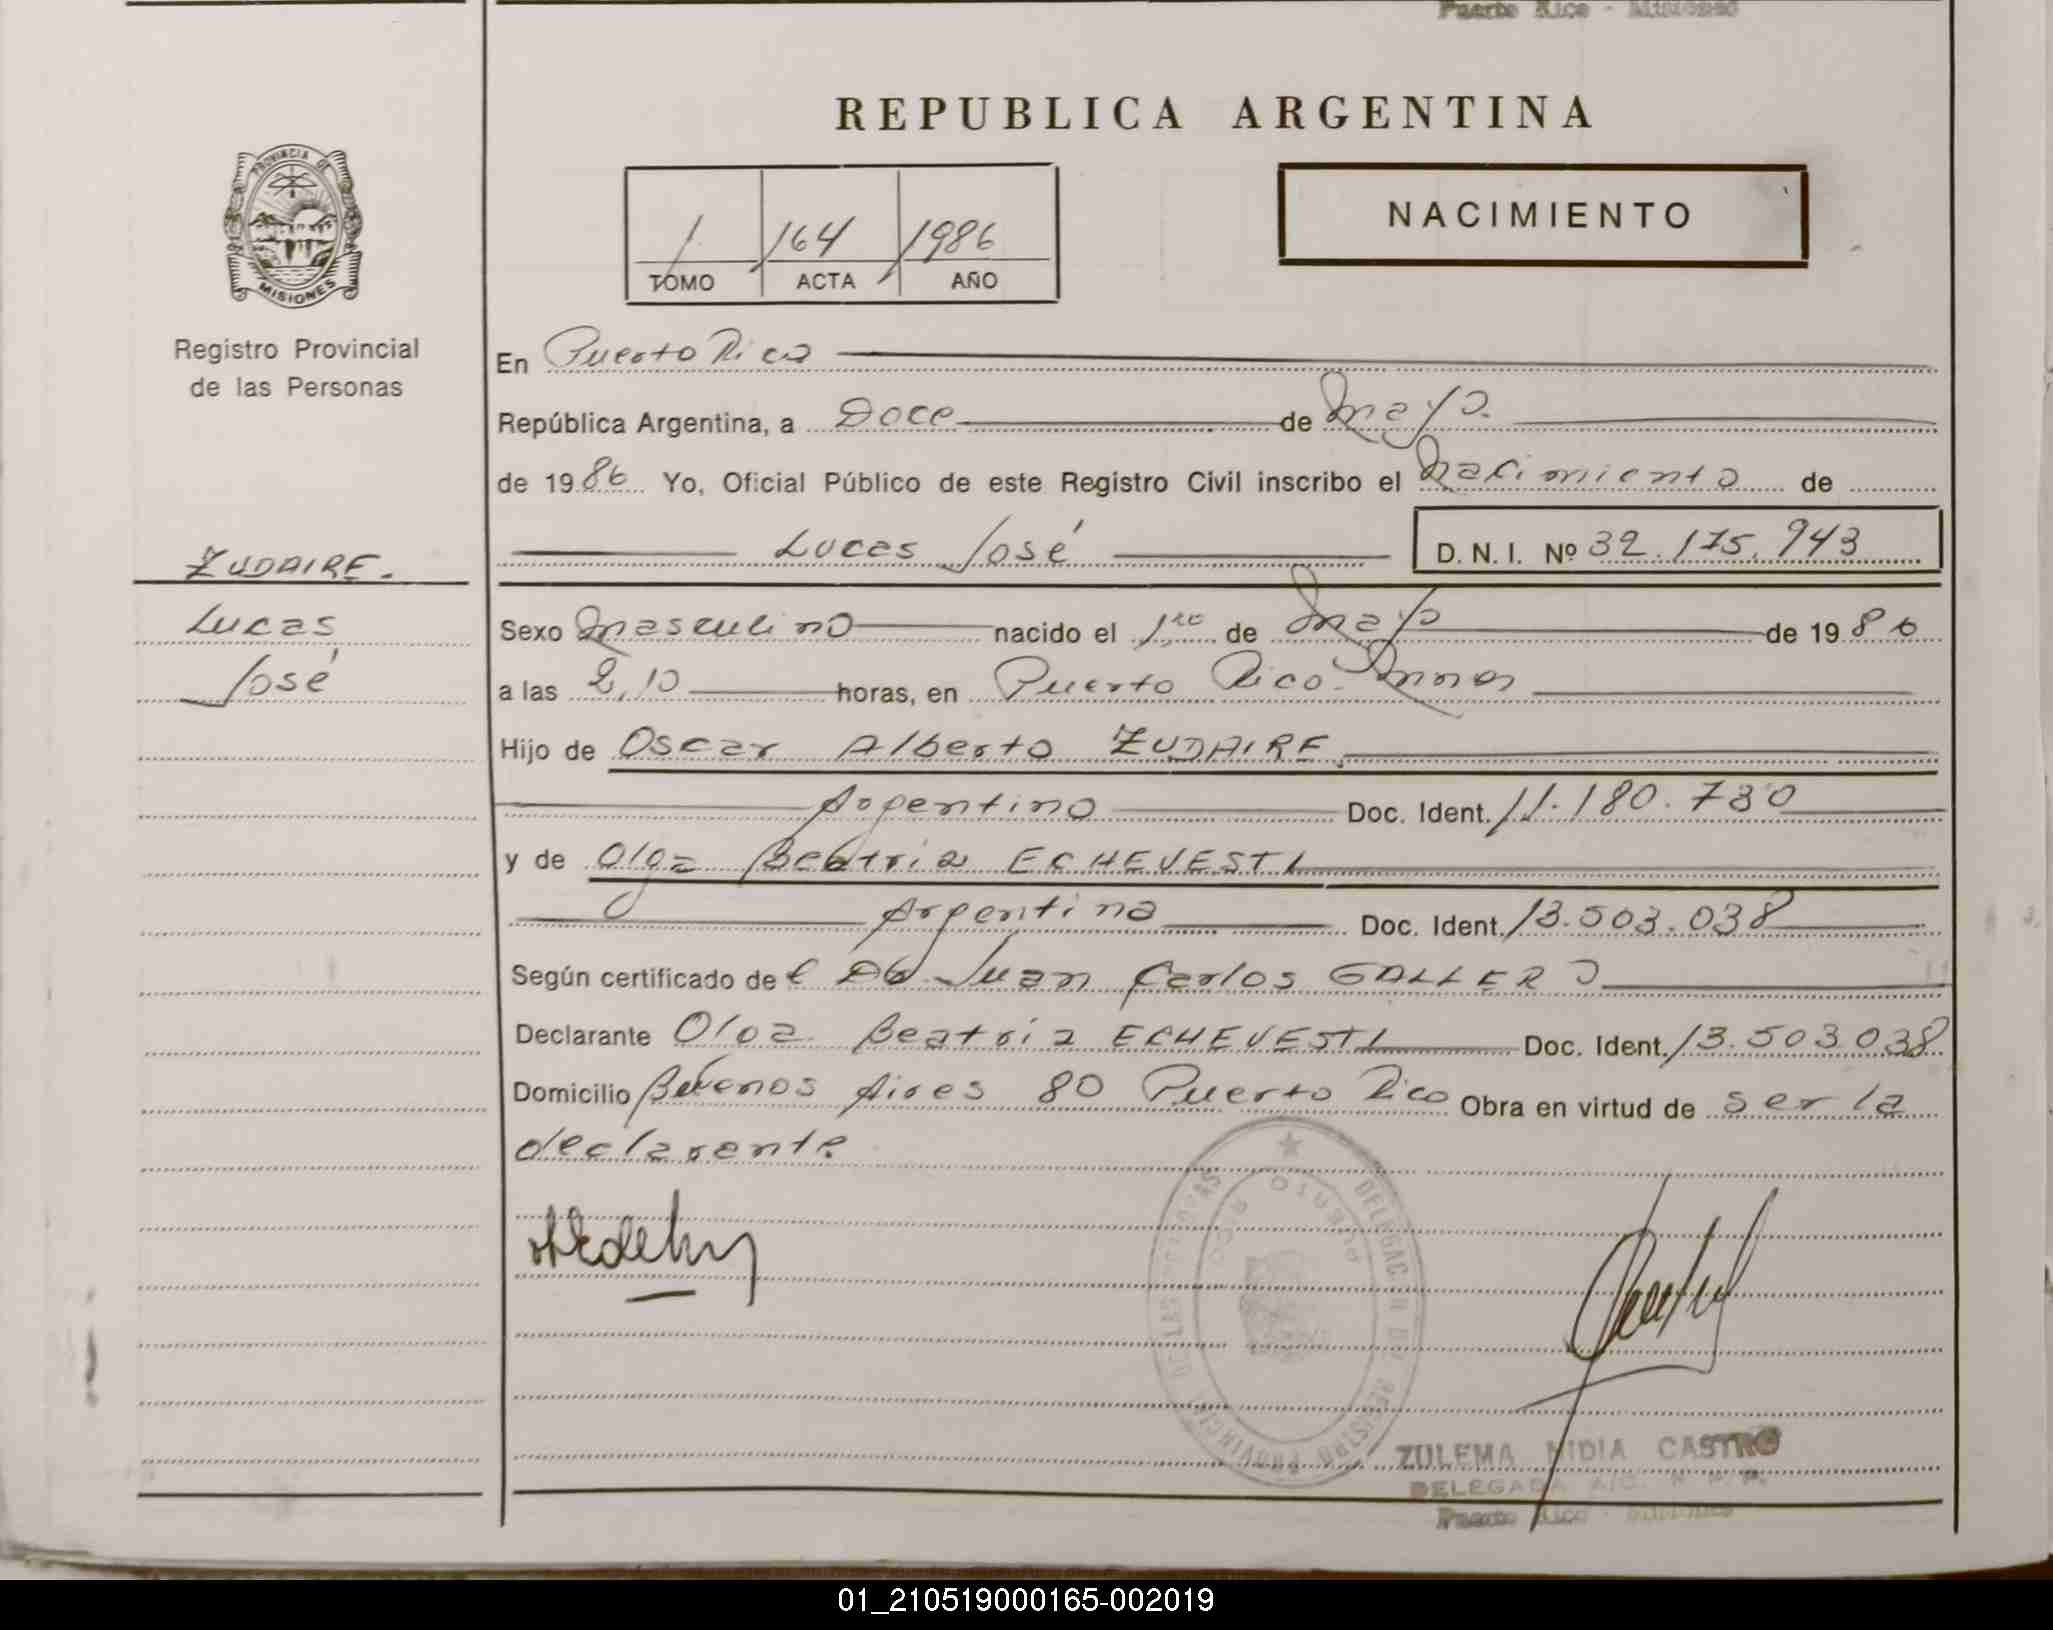 Puerto Rico - Misiones
REPUBLICA ARGENTINA
NACIMIENTO
1 164 1986
TOMO ACTA AÑO
PROVINCIA DE
MISIONES
Registro Provincial
de las Personas
ZUDAIRE.
Lucas
José
En Puerto Rico
República Argentina, a Doce de Mayo.
de 1986 Yo, Oficial Público de este Registro Civil inscribo el Nacimiento de
Lucas José D. N. I. Nº 32.175.943
Sexo Masculino nacido el 1ro de Mayo de 1986
a las 2,10 horas, en Puerto Rico Mnes
Hijo de Oscar Alberto ZUDAIRE
Argentino Doc. Ident. 11.180.730
y de Olga Beatriz ECHEVESTI
Argentina Doc. Ident. 13.503.038
Según certificado del Dr Juan Carlos GALLERO
Declarante Olga Beatriz ECHEVESTI Doc. Ident. 13.503.038
Domicilio Buenos Aires 80 Puerto Rico Obra en virtud de ser la
declarante
DELEGACION DE REGISTRO PROVINCIAL DE LAS PERSONAS
PUERTO RICO
ZULEMA NIDIA CASTRO
DELEGADA
Puerto Rico - Misiones
01_210519000165-002019